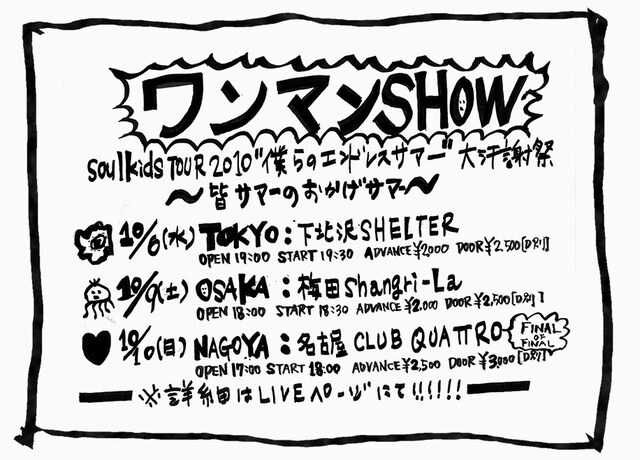 ワンマンSHOW
soulkids TOUR 2010 "僕らのエンドレスサマー" 大汗謝祭
〜皆サマーのおかげサマー〜
10/6(水) TOKYO：下北沢SHELTER
OPEN 19:00 START 19:30 ADVANCE ¥2,000 DOOR ¥2,500 [D別]
10/9(土) OSAKA：梅田Shangri-La
OPEN 18:00 START 18:30 ADVANCE ¥2,000 DOOR ¥2,500 [D別]
10/10(日) NAGOYA：名古屋 CLUB QUATTRO
FINAL OF FINAL
OPEN 17:00 START 18:00 ADVANCE ¥2,500 DOOR ¥3,000 [D別]
※詳細はLIVEページにて!!!!!!